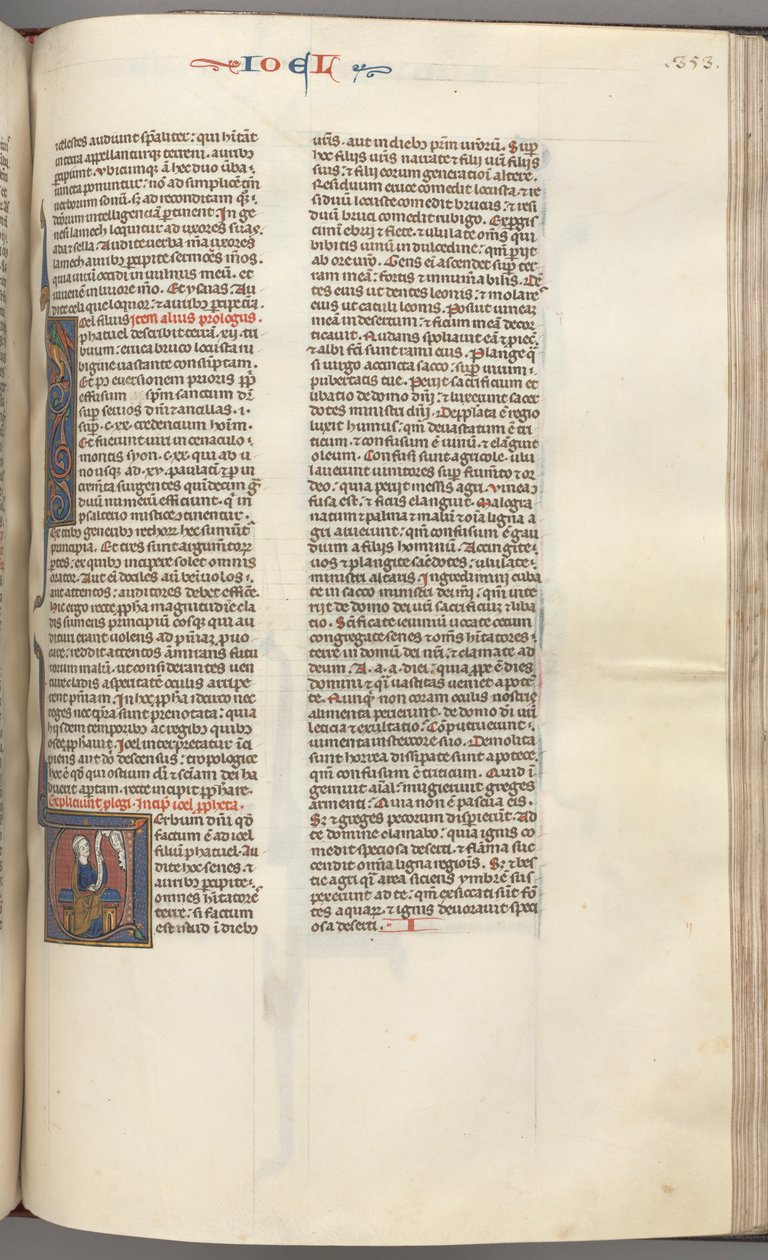 IOEL
.353.
celestes audiunt sp̃aliter: qui h̃itãt
in terra appellanturqȝ terreni. auribȝ
p̱cipiunt. Vbicumqȝ ã hec duo ũba.
iuncta ponuntur: nõ ad simplicẽ tñ
uerborum sonũ. sȝ ad reconditam
intelligenciã p̱tinent. In ge
nesi lamech loquitur ad uxores suas.
ada ⁊ sella. Audite uerba m̃a uxores
lamech auribȝ p̱cipite sermões m̃os.
quia uirũ occidi in uulnus meũ. et
iuuenẽ in liuore m̃o. Et ysaias. Au
dite celi que loquor: ⁊ auribȝ p̱cipe t̃ra.
Ioel filius Item alius prologus.
phatuel describit terrã .xii. tri
buum: eruca bruco locusta ru
bigine uastante consũptam.
Et pꝰ euersionem prioris pp̃li
effusum sp̃m sanctum dñi
sup̱ seruos dñi ⁊ ancillas. .i.
sup̱ .c.xx. credencium ho͠im.
Et fuerunt uiri in cenaculo.
montis syon .c.xx. qui ab u
no usqȝ ad .xv. paulati͠ p̱ in
crem̃ta surgentes quĩdecim
duũ numerũ efficiunt. q̃ in
psalterio mistice ꝯtinentur.
principia. Et tres sunt
p̱tes: ex quibȝ incipere solet omnis
orator. Aut eñ dociles aũ beĩuolos.
aut attentos: auditores debet efficẽ.
Hic ergo recte ꝓpha magnitudĩe cla
dis sumens principiũ eosqȝ qui au
dituri erant uolens ad pñiaȝ ꝓuo
care: reddit attentos ãnũcians futu
rorum malũ. ut considerantes uen
ture cladis asperitatẽ oculis arripe
rent pñiam. In hoc ꝓpha idcirco nec
reges nec tp̃ra sunt prenotata: quia
hijsdem temporibȝ ac regibȝ quibȝ
osee ꝓphauit. Ioel interpretatur ĩci
piens aut dõ descensus: tropologice
hoc ẽ qđ qui ostium dñi ⁊ sciam dei ha
buerit aptam. recte incipit ꝓpharẽ.
Expliciunt plogi. Incip̃ ioel ꝓpheta.
Verbum dñi qđ
factum ẽ ad ioel
filiũ phatuel. Au
dite hoc senes. ⁊
auribȝ p̱cipite.
omnes h̃itatorẽ
terre: si factum
est istud ĩ diebȝ
ur̃is. aut in diebȝ pr̃m ur̃orũ. Sup̱
hoc filiis ur̃is narrate ⁊ filii ur̃i filiis
suis: ⁊ filii eorum generationi altere.
Residuum eruce comedit locusta. ⁊ re
siduũ locuste comedit brucus. ⁊ resi
duũ bruci comedit rubigo. Exp̱gis
cimĩ ebrii ⁊ flete. ⁊ ululate om̃s qui
bibitis uinũ in dulcedine: qm̃ p̱iit
ab ore ur̃o. Gens eñ ascendit sup̱ ter
ram meã: fortis ⁊ innumabilis. De͠
tes eius ut dentes leonis: ⁊ molares
eius ut catuli leonis. Posuit uineaȝ
meã in desertum: ⁊ ficum meã decor
ticauit. Nudans spoliauit eã ⁊ p̱iec̃.
⁊ albi fc̃i sunt rami eius. Plange q̃
si uirgo accincta sacco: sup̱ uirum
pubertatis tue. Periit sacrificium et
libatio de domo dñi: ⁊ luxerunt sacer
dotes ministri dñi. Dep̱plata ẽ regio
luxit humus: qm̃ deuastatum ẽ tri
ticum. ⁊ confusum ẽ uinũ. ⁊ elanguit
oleum. Confusi sunt agricole. ulu
lauerunt uinitores sup̱ frum̃to ⁊ or
deo: quia periit messis agri. Vinea cõ
fusa est: ⁊ ficus elanguit. Malogra
natum ⁊ palma ⁊ malũ ⁊ oĩa ligna a
gri aruerunt: qm̃ confusum ẽ gau
dium a filiis hominũ. Accingite.
uos ⁊ plangite sac̃dotes: ululate.
ministri altaris. Ingredimini cuba
te in sacco ministri dei m̃i: qm̃ inte
riit de domo dei ur̃i sacrificiũ ⁊ liba
tio. Sc̃ificate ieiuniũ uocate cetum
congregate senes ⁊ om̃s h̃itatores.
terre in domũ dei ur̃i: ⁊ clamate ad
deum. A. a. a. diei: quia ꝓpe ẽ dies
domini ⁊ q̃i uastitas ueniet a potẽ
te. Nunqȝ non coram oculis nostris
alimenta perierunt. de domo di ur̃i
leticia ⁊ exultatio. Cõputruerunt.
iumenta in stercore suo. Demolita
sunt horrea dissipate sunt apotece.
qm̃ confusum ẽ triticum. Quid ĩ
gemuit aĩal: mugierunt greges
armenti: Quia non ẽ pascua eis.
Sȝ ⁊ greges pecorum disp̱ierunt. Ad
te domine clamabo: quia ignis co
medit speciosa deserti. ⁊ flãma suc
cendit omĩa ligna regiõis. Sȝ ⁊ bes
tie agri q̃i area siciens ymbrẽ sus
pexerunt ad te: qm̃ exsiccati sũt fõ
tes aquaꝝ. ⁊ ignis deuorauit speci
osa deserti.